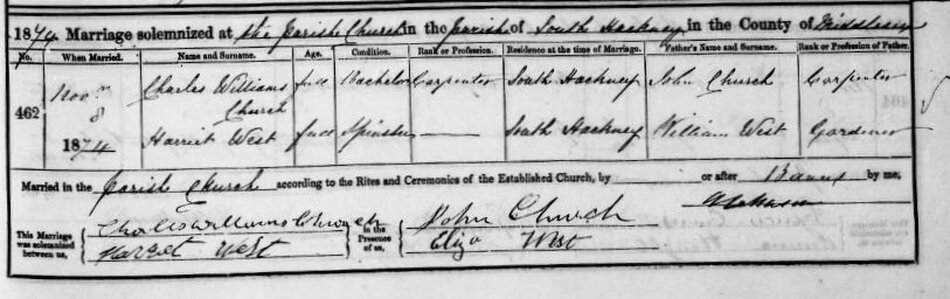 1874 Marriage solemnized at the Parish Church in the Parish of South Hackney in the County of Middlesex
No. When Married. Name and Surname. Age. Condition. Rank or Profession. Residence at the time of Marriage. Father's Name and Surname. Rank or Profession of Father.
462 Novr 8 1874 Charles Williams Church full Bachelor Carpenter South Hackney John Church Carpenter
Harriet West full Spinster South Hackney William West Gardener
Married in the Parish Church according to the Rites and Ceremonies of the Established Church, by or after Banns by me,
This Marriage was solemnized between us, Charles Williams Church in the Presence of us, John Church
Harriet West Eliza West